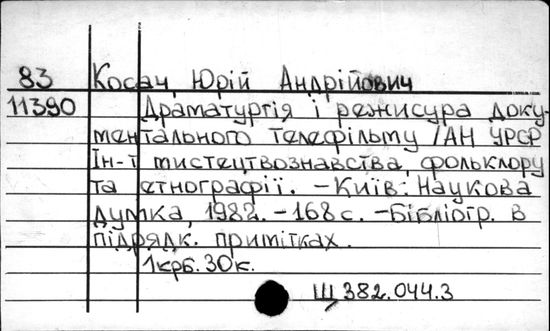 83 Косач, Юрій Андрійович
11390 Драматургія і режисура доку-
ментального телефільму /АН УРСР
Ін-т мистецтвознавства, фольклору
та етнографії. – Київ: Наукова
думка, 1982. – 168 с. – Бібліогр. в
підрядк. примітках.
1крб. 30к.
Щ 382.044.3